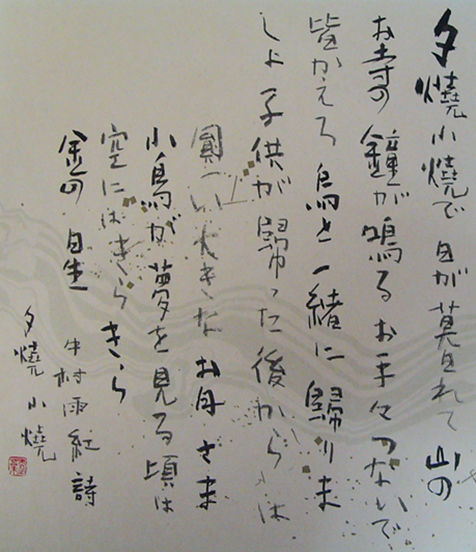 夕燒小燒で日が暮れて山の
お寺の鐘が鳴るお手々つないで
皆かえろ烏と一緒に歸りま
しよ子供が歸った後からは
圓い大きなお月さま
小鳥が夢を見る頃は
空にはきらきら
金の星
中村雨紅詩
夕燒小燒